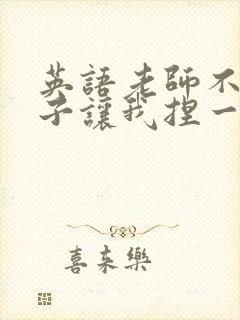 英語老師不
子讓我捏一
喜來樂